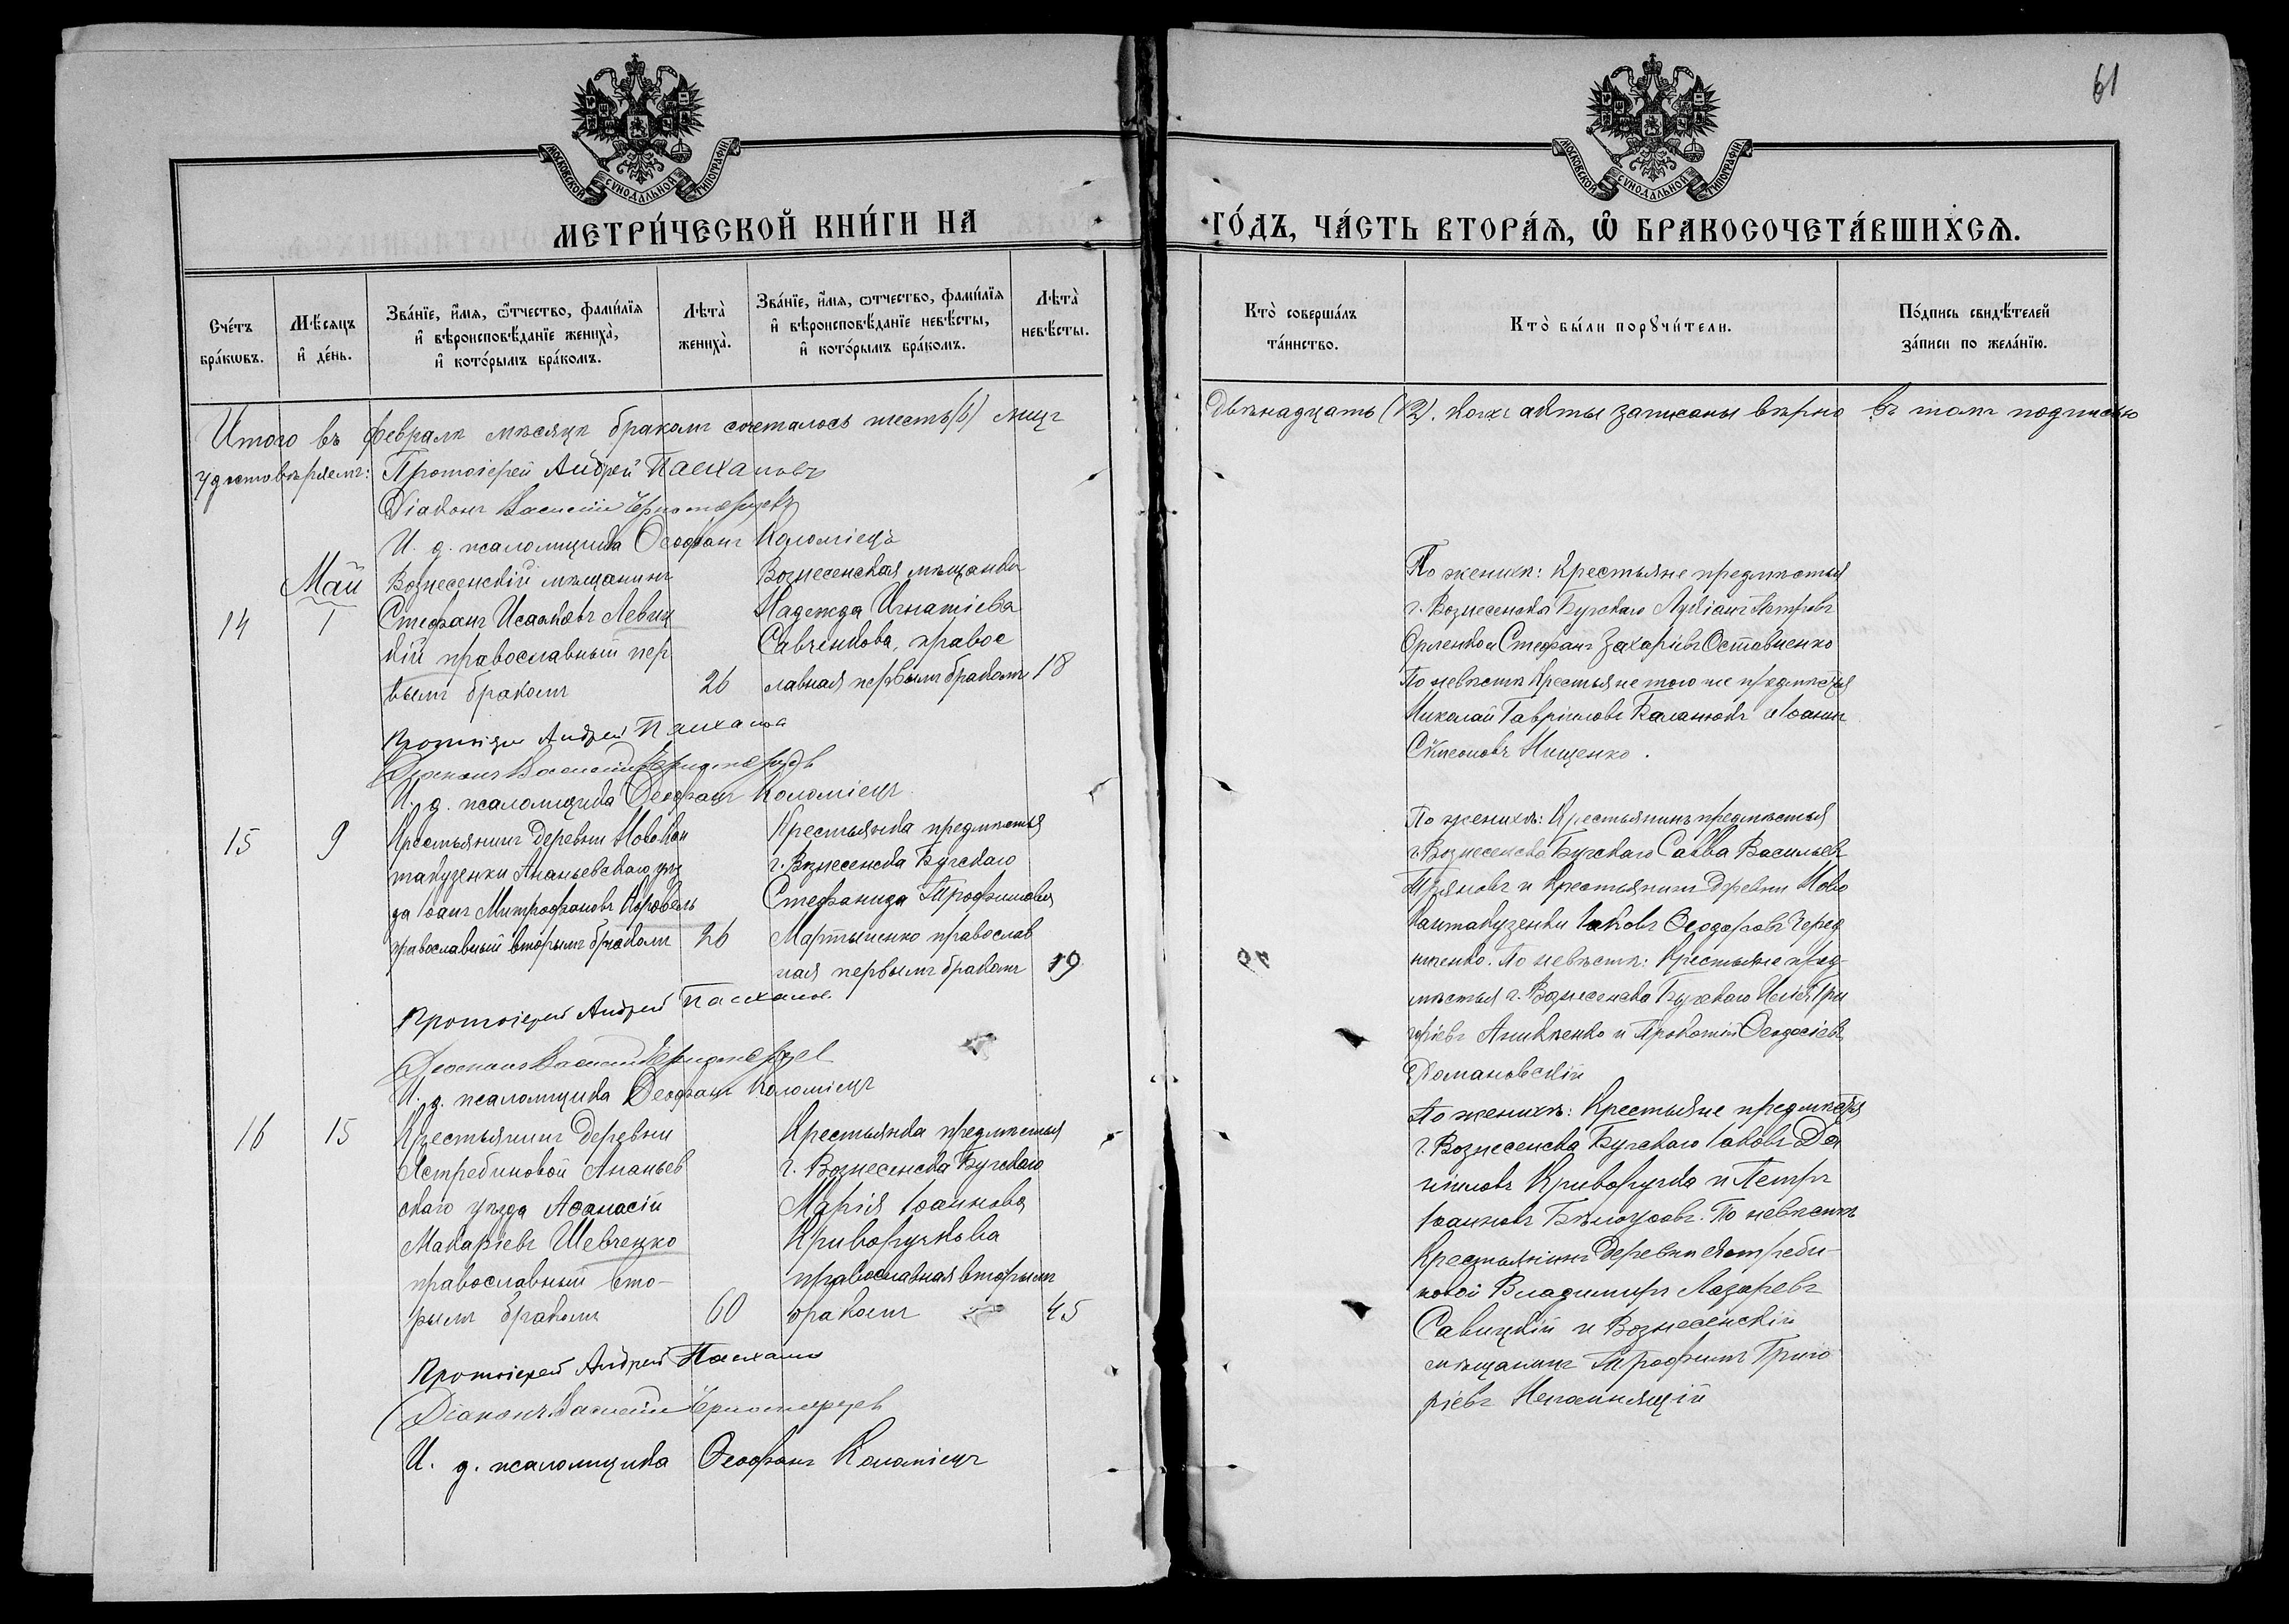 61
МОСКОВСКОЙ СѴНОДАЛЬНОЙ ТИПОГРАФІИ
МОСКОВСКОЙ СѴНОДАЛЬНОЙ ТИПОГРАФІИ
МЕТРИ́ЧЕСКОЙ КНИ́ГИ НА
ГО́ДЪ, ЧА́СТЬ ВТОРА́Ѧ, Ѽ БРАКОСОЧЕТА́ВШИХСѦ.
Сче́тъ
бра́кѡвъ.
Мѣ́сяцъ
и҆ де́нь.
Зва́нїе, и҆́мѧ, ѻ҆́тчество, фами́лїѧ
и҆ вѣроисповѣ́данїе жениха̀,
и҆ кото́рымъ бра́комъ.
Лѣта̀
жениха̀.
Зва́нїе, и҆́мѧ, ѻ҆тчество, фами́лїѧ
и҆ вѣроисповѣ́данїе невѣ́сты,
и҆ кото́рымъ бра́комъ.
Лѣта̀
невѣ́сты.
Кто̀ соверша́лъ
та́инство.
Кто̀ бы́ли порꙋчи́тели.
По́дпись свидѣ́телей
за́писи по жела́нїю.
Итого въ февралѣ мѣсяцѣ бракомъ сочеталось шесть (6) лицъ
двѣнадцать (12). акты записаны вѣрно въ томъ подписью
удостовѣряемъ: Протоіерей Андрей Пасхаловъ
Діаконъ Василій Черноморцевъ
И. д. псаломщика Ѳеофанъ Коломіецъ
Май
14
1
Вознесенскій мѣщанинъ
Стефанъ Исааковъ Левиц
кій православный пер
вымъ бракомъ
26
Вознесенская мѣщанка
Надежда Игнатіева
Савченкова, правос
лавная первымъ бракомъ
18
По женихѣ: Крестьяне предмѣстья
г. Вознесенска Бугскаго Лукіанъ Петровъ
Орленко и Стефанъ Захаріевъ Оставненко
По невѣстѣ Крестьяне того же предмѣстья
Николай Гавріиловъ Каланюкъ и Іоаннъ
Сѵмеоновъ Нищенко.
Протоіерей Андрей Пасхаловъ
Діаконъ Василій Черноморцевъ
И. д. псаломщика Ѳеофанъ Коломіецъ
15
9
Крестьянинъ деревни Новокан
такузенки Ананьевскаго уѣз
да Іоаннъ Митрофановъ Коровель
православный вторымъ бракомъ
26
Крестьянка предмѣстья
г. Вознесенска Бугскаго
Стефанида Трофимовна
Мартыненко православ
ная первымъ бракомъ
19
По женихѣ: Крестьянинъ предмѣстья
г. Вознесенска Бугскаго Савва Васильевъ
и Крестьянинъ деревни Ново
кантакузенки Іаковъ Ѳеодоровъ Черед
ниченко. По невѣстѣ: Крестьяне пред-
мѣстья г. Вознесенска Бугскаго Илія Гри
горіевъ и Прокопій Ѳеодосіевъ
Романовскій
Протоіерей Андрей Пасхаловъ
Діаконъ Василій Черноморцевъ
И. д. псаломщика Ѳеофанъ Коломіецъ
16
15
Крестьянинъ деревни
Ястребиновой Ананьев
скаго уѣзда Аѳанасій
Макаріевъ Шевченко
православный вто-
рымъ бракомъ
60
Крестьянка предмѣстья
г. Вознесенска Бугскаго
Марія Іоаннова
Криворучкова
православная вторымъ
бракомъ
45
По женихѣ: Крестьяне предмѣстья
г. Вознесенска Бугскаго Іаковъ Да
ніиловъ Криворучко и Петръ
Іоанновъ Бѣлоусовъ. По невѣстѣ
Крестьянинъ деревни Ястреби-
новой Владимиръ Лазаревъ
Савицкій и Вознесенскій
мѣщанинъ Трофимъ Григо
ріевъ Непомнящій
Протоіерей Андрей Пасхаловъ
Діаконъ Василій Черноморцевъ
И. д. псаломщика Ѳеофанъ Коломіецъ